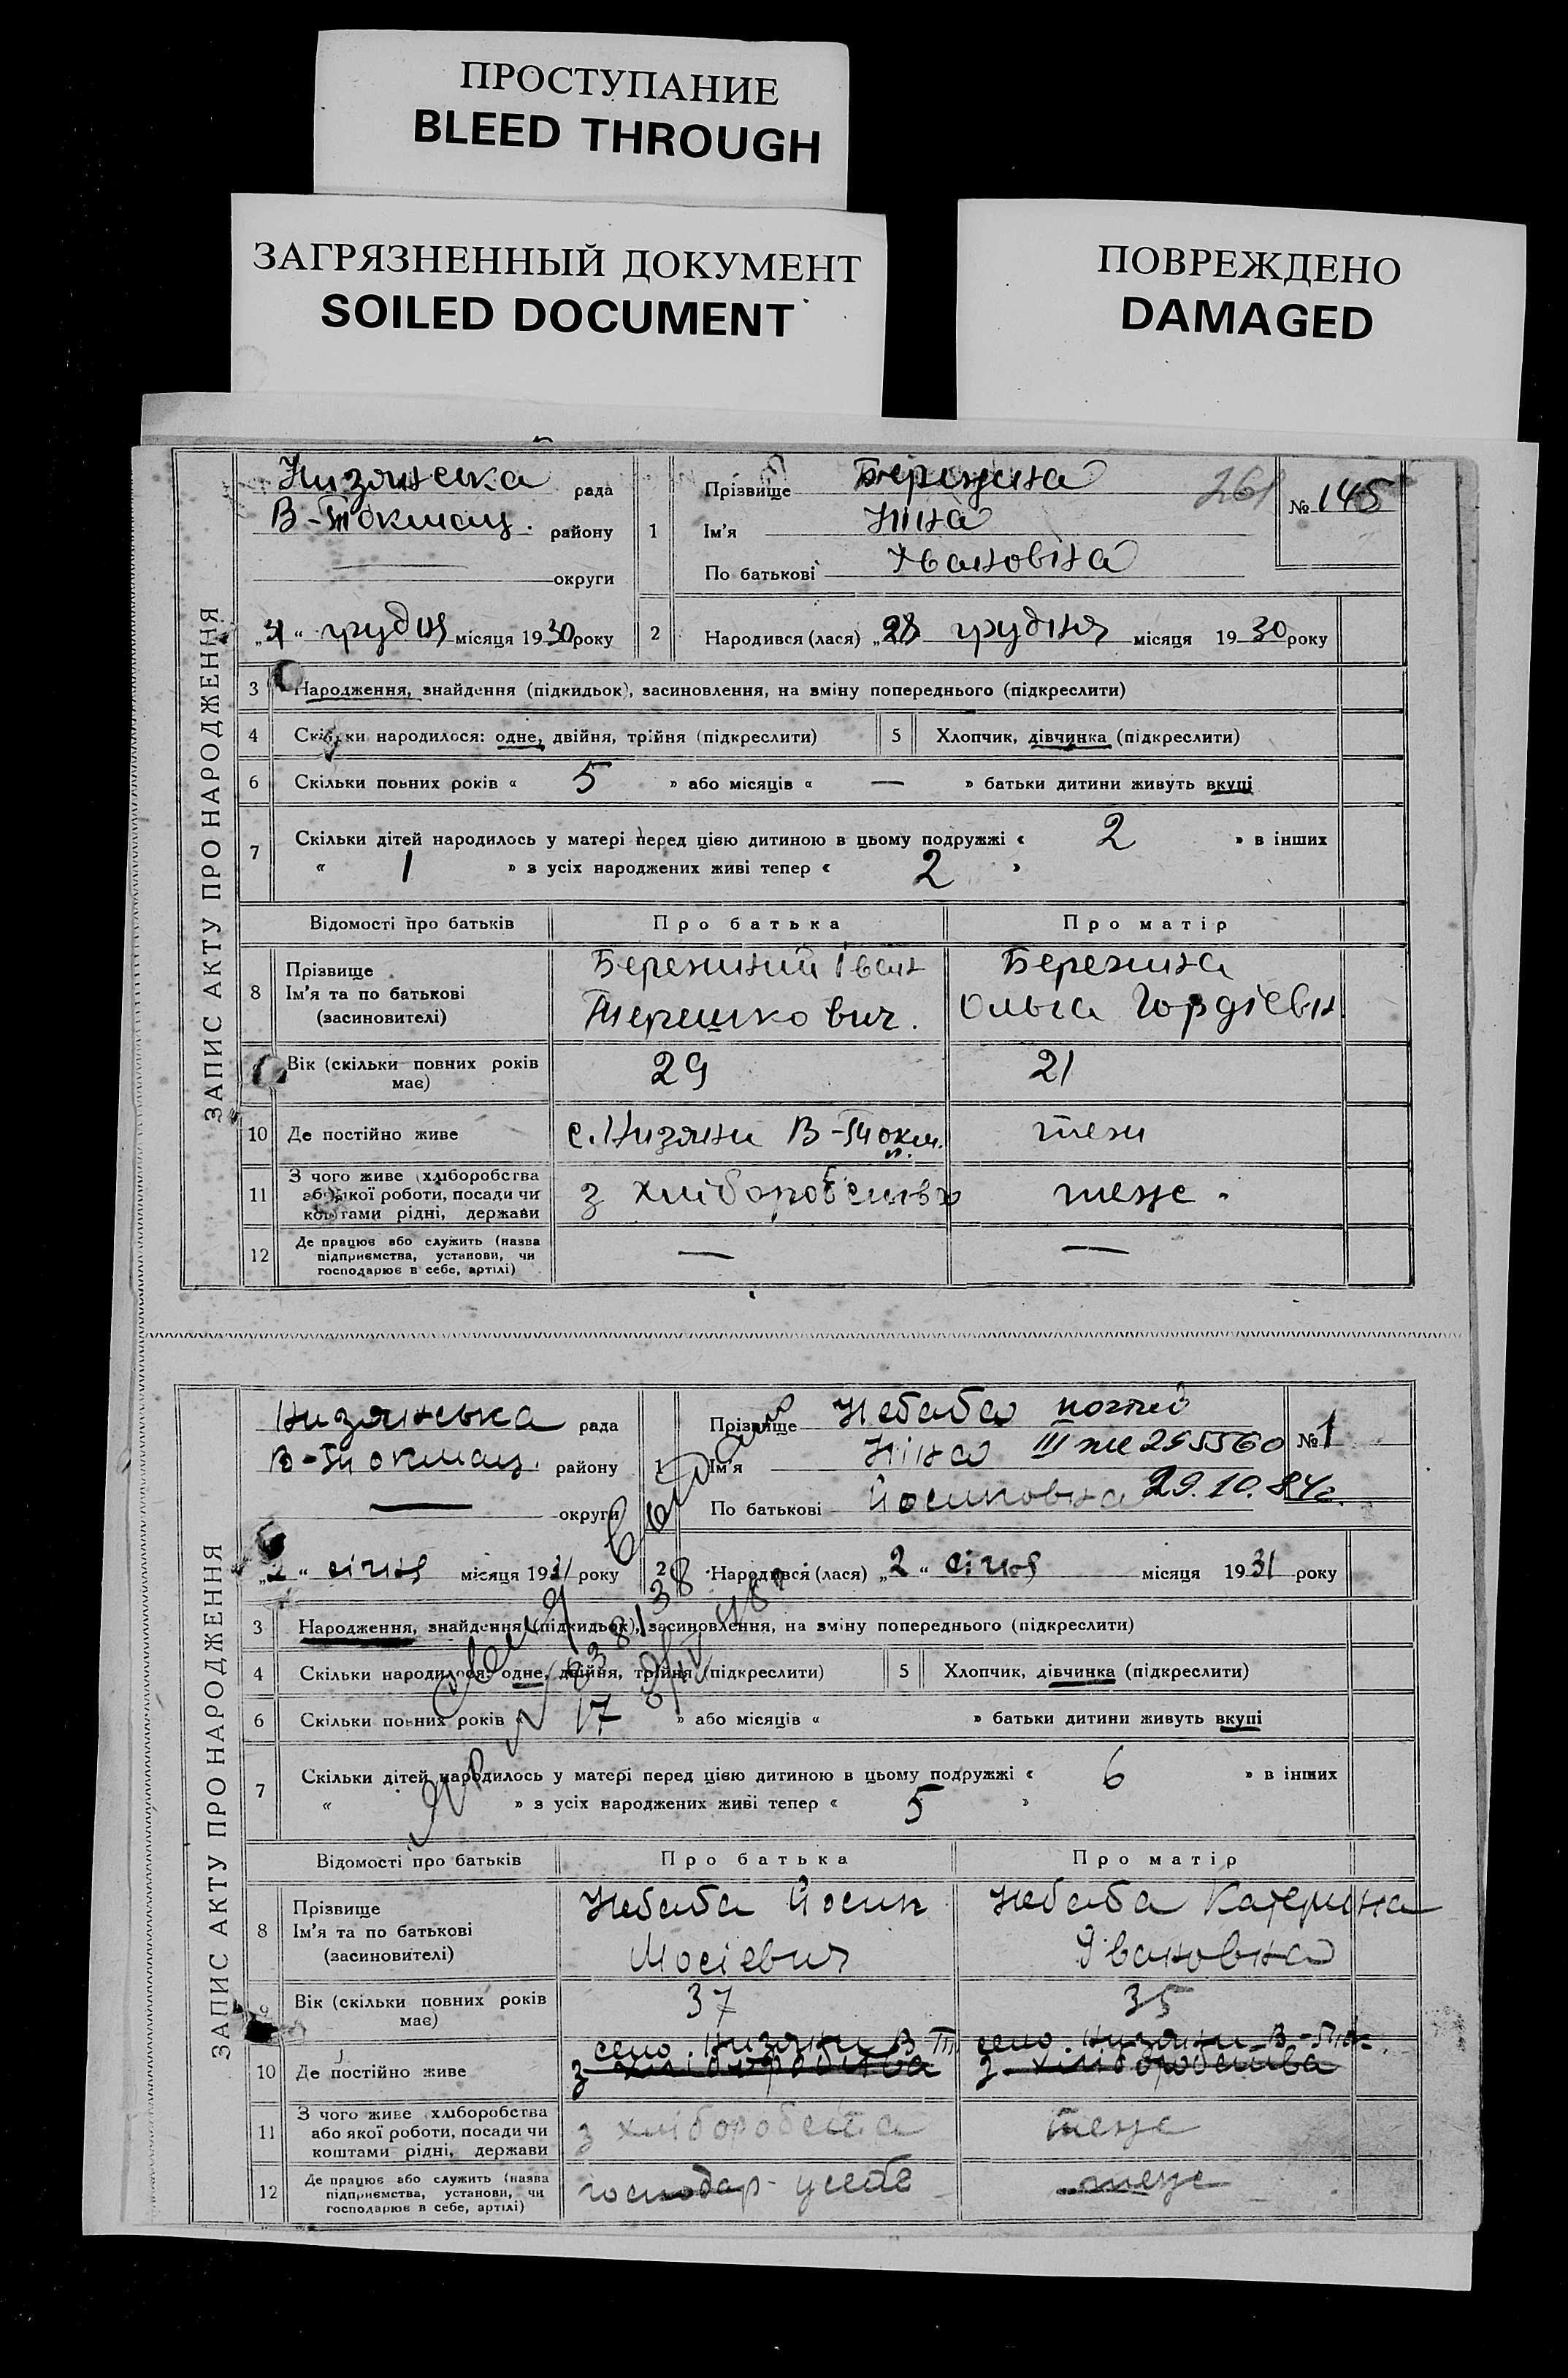 ПРОСТУПАНИЕ
BLEED THROUGH
ЗАГРЯЗНЕННЫЙ ДОКУМЕНТ
SOILED DOCUMENT
ПОВРЕЖДЕНО
DAMAGED
ЗАПИС АКТУ ПРО НАРОДЖЕННЯ
Низянська рада
В-Токмац. району
округи
"31" грудня місяця 1930 року
1
Прізвище Бережна
261
№ 145
Ім'я Ніна
По батькові Івановна
2 Народився (лася) "28 грудня місяця 1930 року
3 Народження, знайдення (підкидьок), засиновлення, на зміну попереднього (підкреслити)
4 Скільки народилося: одне, двійня, трійня (підкреслити) 5 Хлопчик, дівчинка (підкреслити)
6 Скільки повних років « 5 » або місяців « — » батьки дитини живуть вкупі
7 Скільки дітей народилось у матері перед цією дитиною в цьому подружжі « 2 » в інших
« 1 » з усіх народжених живі тепер « 2 »
Відомості про батьків Про батька Про матір
8 Прізвище
Ім'я та по батькові
(засиновителі)
Бережний Іван
Терешкович.
Бережна
Ольга Гордіевн
Вік (скільки повних років
має)
29 21
10 Де постійно живе с. Низяни В-Токм. теж
11 З чого живе (хліборобства
або якої роботи, посади чи
коштами рідні, держави
з хліборобства теже.
12 Де працює або служить (назва
підприємства, установи, чи
господарює в себе, артілі)
— —
ЗАПИС АКТУ ПРО НАРОДЖЕННЯ
Низянська рада
В-Токмац. району
округи
"2" січня місяця 1931 року
1
Прізвище Небаба
№ 1
Ім'я Ніна III 295560
По батькові Йосиповна 29.10.84г.
2 Народився (лася) "2" січня місяця 1931 року
3 Народження, знайдення (підкидьок), засиновлення, на зміну попереднього (підкреслити)
4 Скільки народилося: одне, двійня, трійня (підкреслити) 5 Хлопчик, дівчинка (підкреслити)
6 Скільки повних років « 17 » або місяців « » батьки дитини живуть вкупі
7 Скільки дітей народилось у матері перед цією дитиною в цьому подружжі « 6 » в інших
« » з усіх народжених живі тепер « 5 »
Відомості про батьків Про батька Про матір
8 Прізвище
Ім'я та по батькові
(засиновителі)
Небаба Йосип
Мосієвич
Небаба Катерина
Івановна
9 Вік (скільки повних років
має)
37 35
село. Низяни В-Т село. Низяни В-Ток.
10 Де постійно живе з хліборобства з хліборобства
11 З чого живе (хліборобства
або якої роботи, посади чи
коштами рідні, держави
з хліборобства теже
12 Де працює або служить (назва
підприємства, установи, чи
господарює в себе, артілі)
господар усебе теже